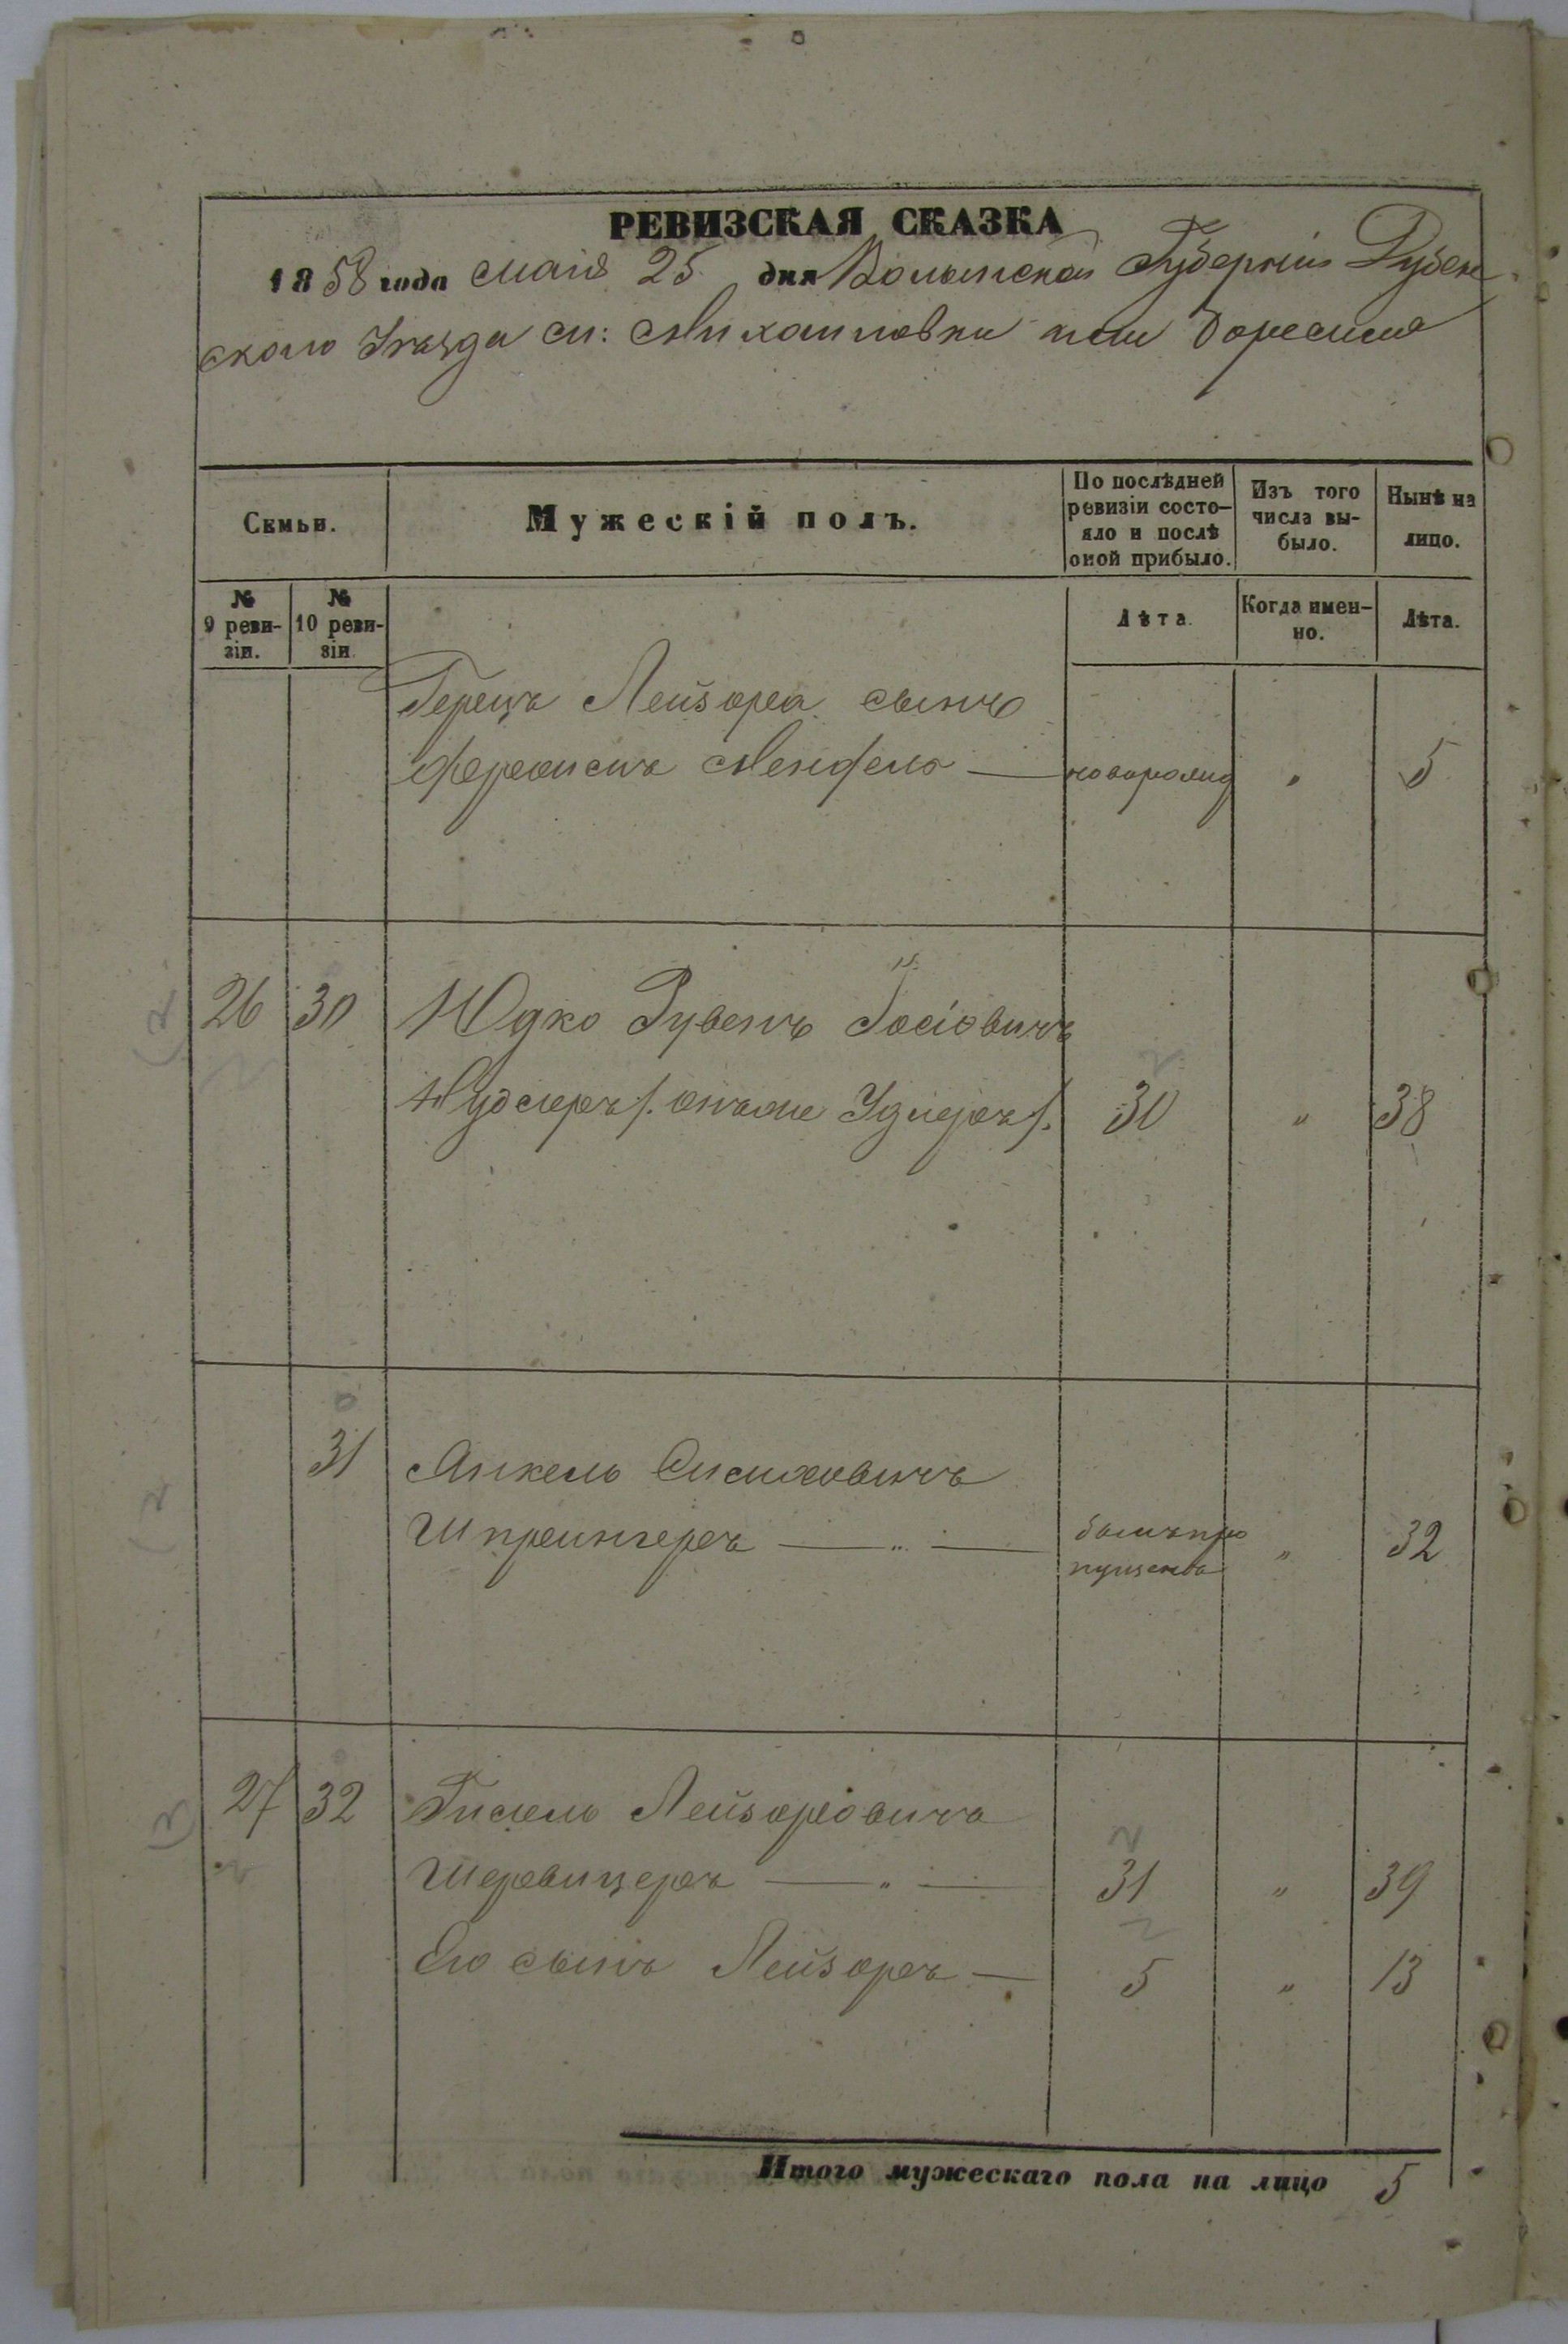 РЕВИЗСКАЯ СКАЗКА
1858 года маія 25 дня Волынской Губерніи Дубен
ского Уѣзда м: Михаиловки или
Семьи.
Мужескій полъ.
По послѣдней ревизіи состо-
яло и послѣ
оной прибыло.
Изъ того
числа вы-
было.
Нынѣ на
лицо.
№
9 реви-
зіи.
№
10 реви-
зіи.
Лѣта.
Когда имен-
но.
Лѣта.
Герецъ Лейзора сынъ
Мендель — новорожд „ 5
26 30 Юдко Рувенъ Іосіовичъ
/: онъ же :/ 30 „ 38
31 Янкель
Шпрингеръ — „ — былъ про
пущенъ „ 32
27 32 Лейзоровичъ
— „ — 31 „ 39
Его сынъ Лейзоръ — 5 „ 13
Итого мужескаго пола на лицо 5